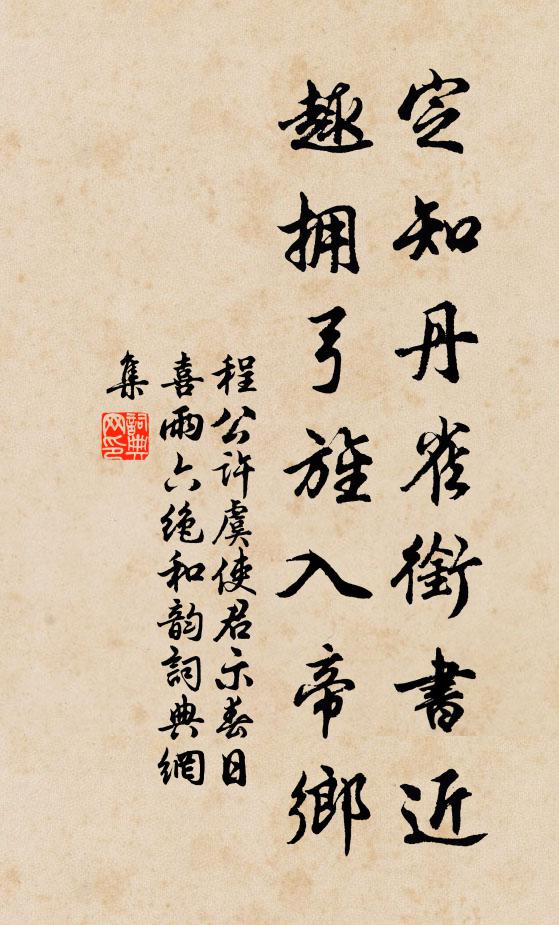 定知丹雀銜書近
趣拥弓旌入帝鄉
程公许虞使君示春日
喜雨六绝和韵詞典網
集
詞典
网印